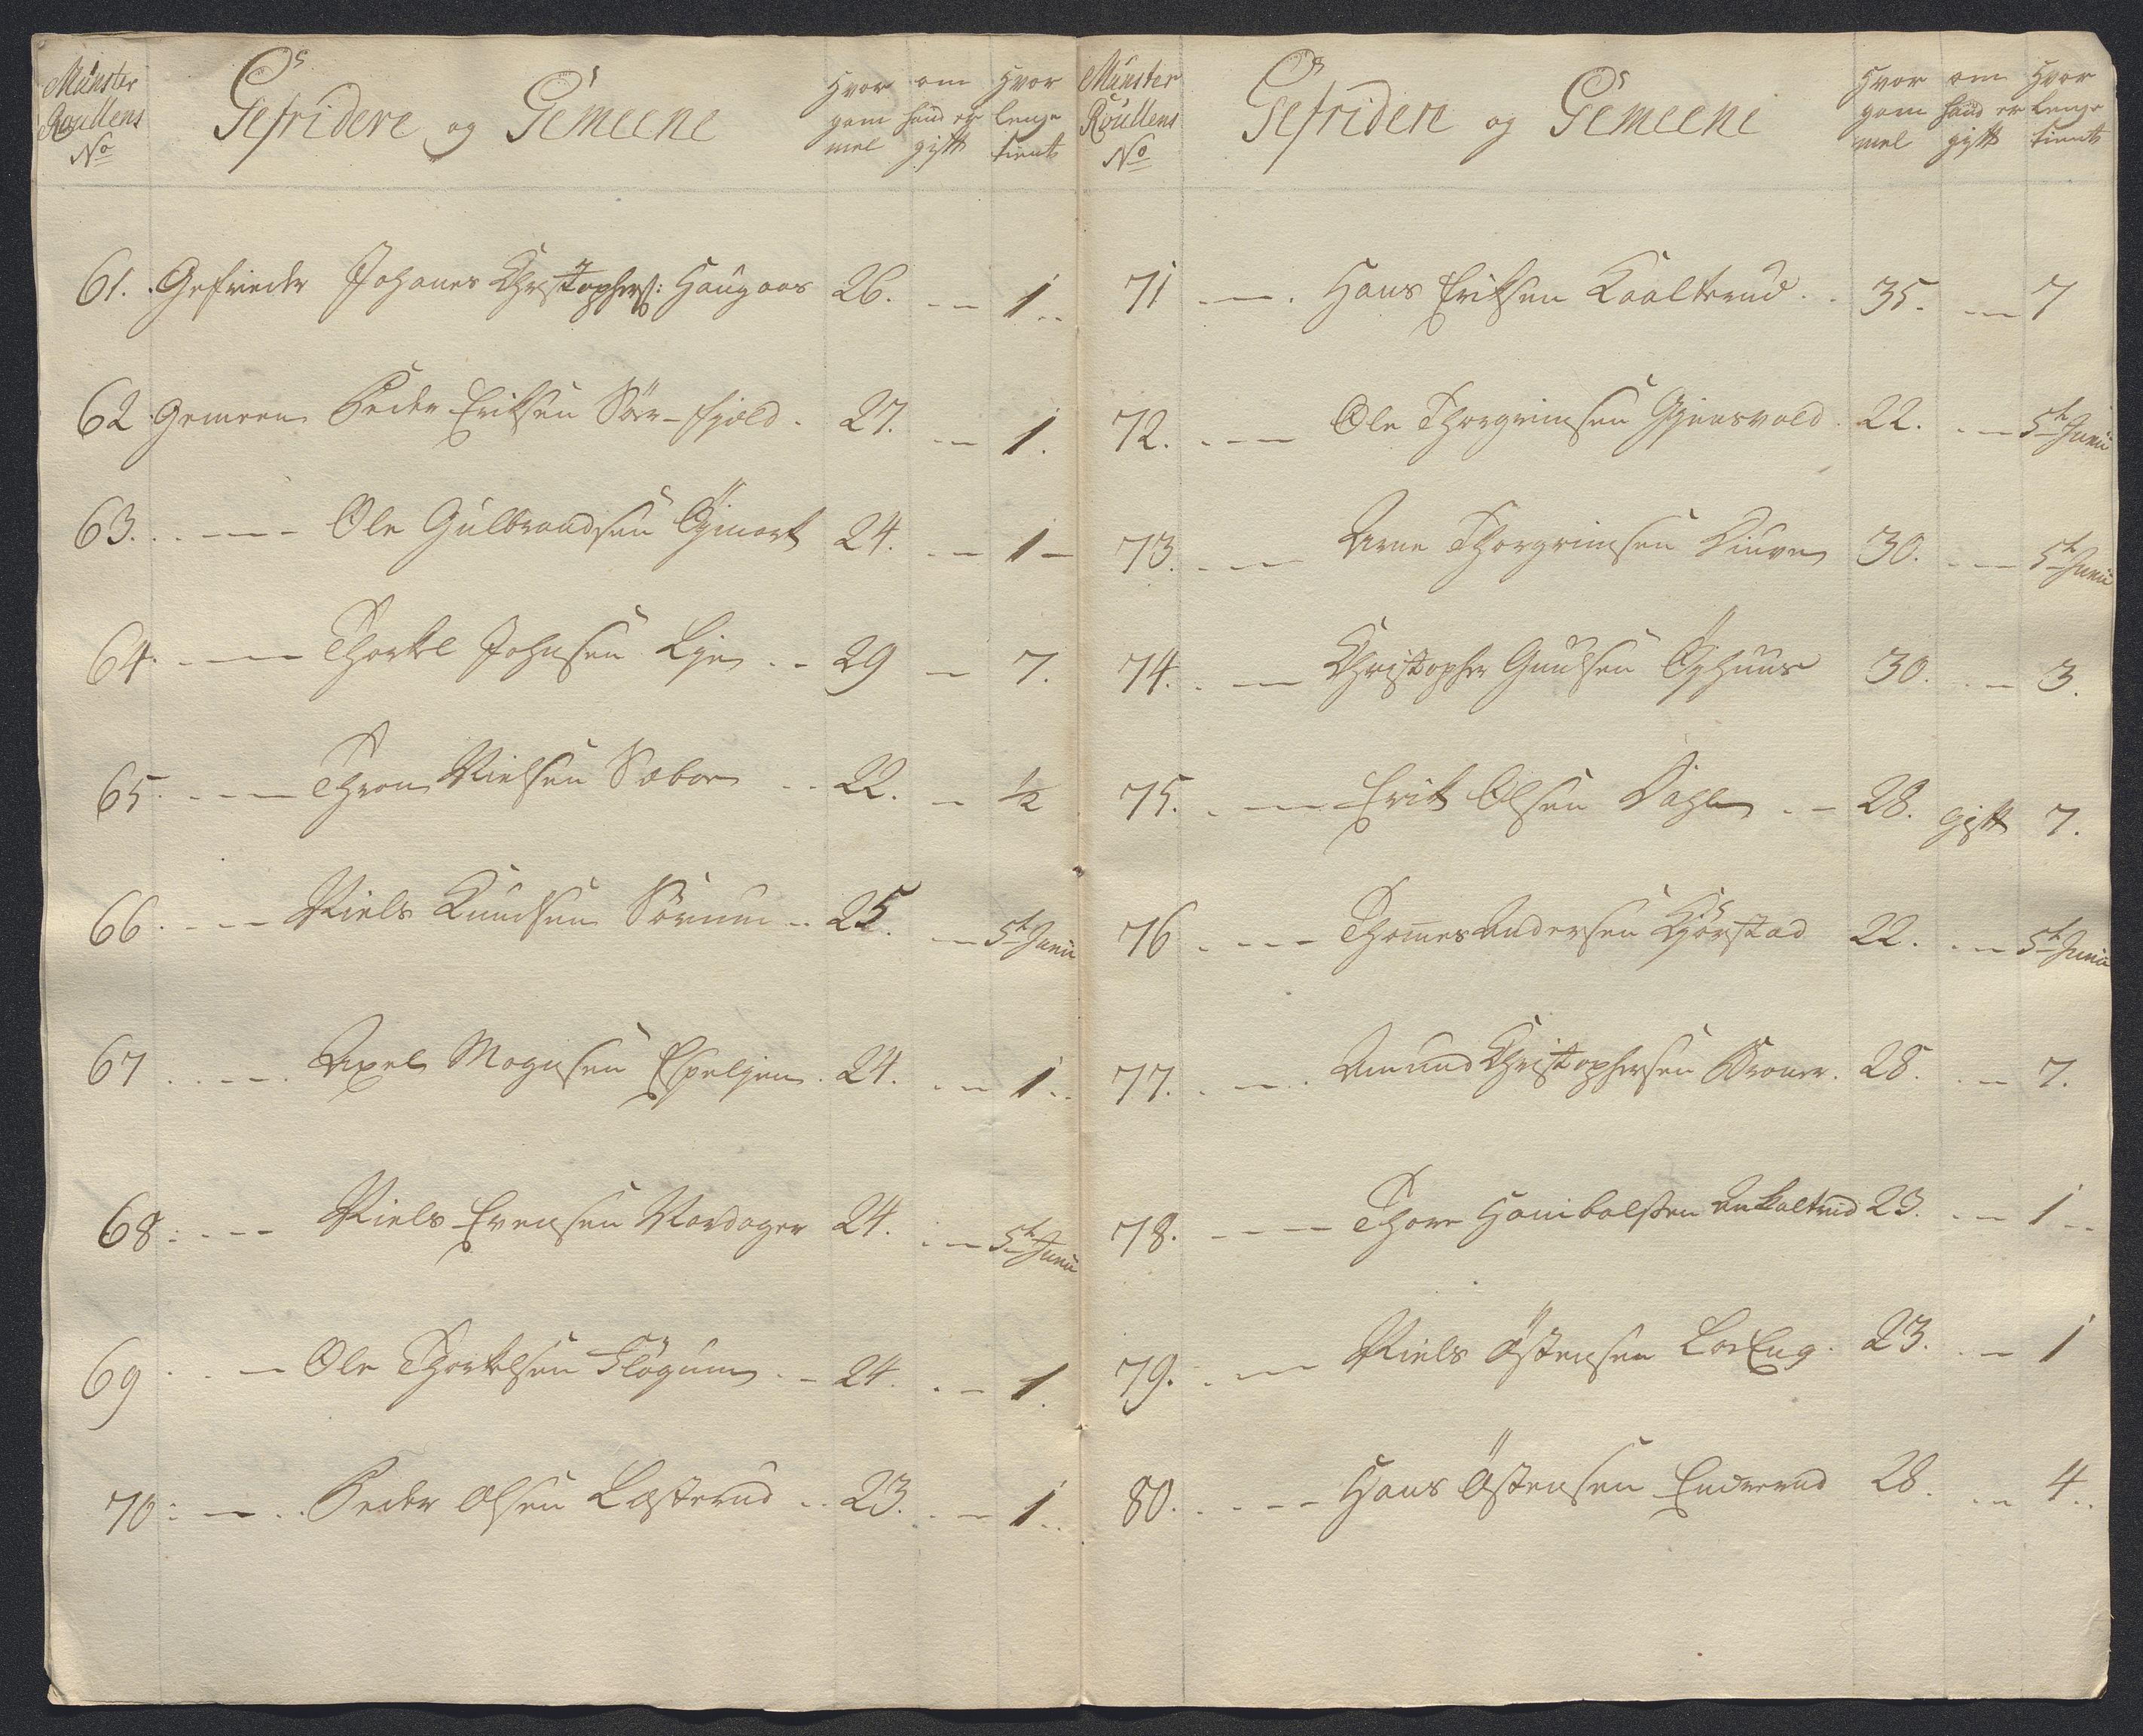 Münster Roullens No
Gefridere og Gemeene
Hvor gam mel
om hand er gift
Hvor lenge tient
61. Gefrieder Johanes Christophers: Haugaas 26. -- 1..
62 Gemeen Peder Eriksen Sör-fjeld. 27. -- 1.
63. .. --- Ole Gulbrandsen Öÿmark 24. -- 1 -
64. --- Thorkel Johnsen Lye .. 29 - 7.
65. --- Thron Nielsen Sebo .. 22. - ½
66. --- Niels Knudsen Sörum .. 25. - 5te Junii
67 .... Axel Mognsen Espeljen. 24. .. - 1..
68: .-- Niels Evensen Nordager 24. .. - 5te Junii
69 . . - Ole Thorkelsen Fløgum . - 24. . - 1.
70: - .. Peder Olsen Lasterud .. 23. .. - 1..
Münster Roullens No
Gefridere og Gemeene
Hvor gam mel
om hand er gift
Hvor lenge tient
71 --. Hans Eriksen Kaalterud. . 35. -- 7
72. .-- Ole Thorgrimsen Gjensvold. 22. .. - 5te Junii
73. .-- Arne Thorgrimsen Diuve 30. .. - 5te Junii
74. . -- Christopher Gundsen Öÿhuus 30. .. - 3.
75. . --- Erik Olsen Dahle .. - 28. gift 7.
76 .--- Thomes Andersen Kjörstad 22. .. - 5te Junii
77. . --. Amund Christophersen Broner. 28. .. - 7.
78. --- Thore Hanibalsen Ankaltrud 23. .. - 1 ..
79. . -- Niels Østensen Lor Eng. 23. .. - 1
80. .--- Hans Östensen Enderud 28. .. - 4..